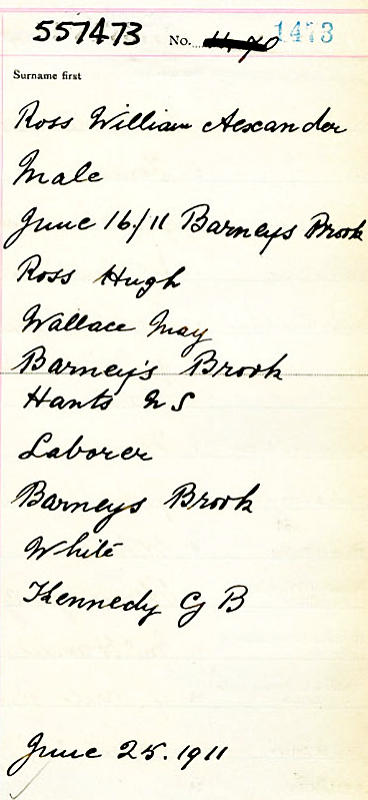 557473 No. 1473
Surname first
Ross William Alexander
Male
June 16/11 Barneys Brook
Ross Hugh
Wallace May
Barney's Brook
Hants N S
Laborer
Barneys Brook
White
Kennedy G B
June 25. 1911